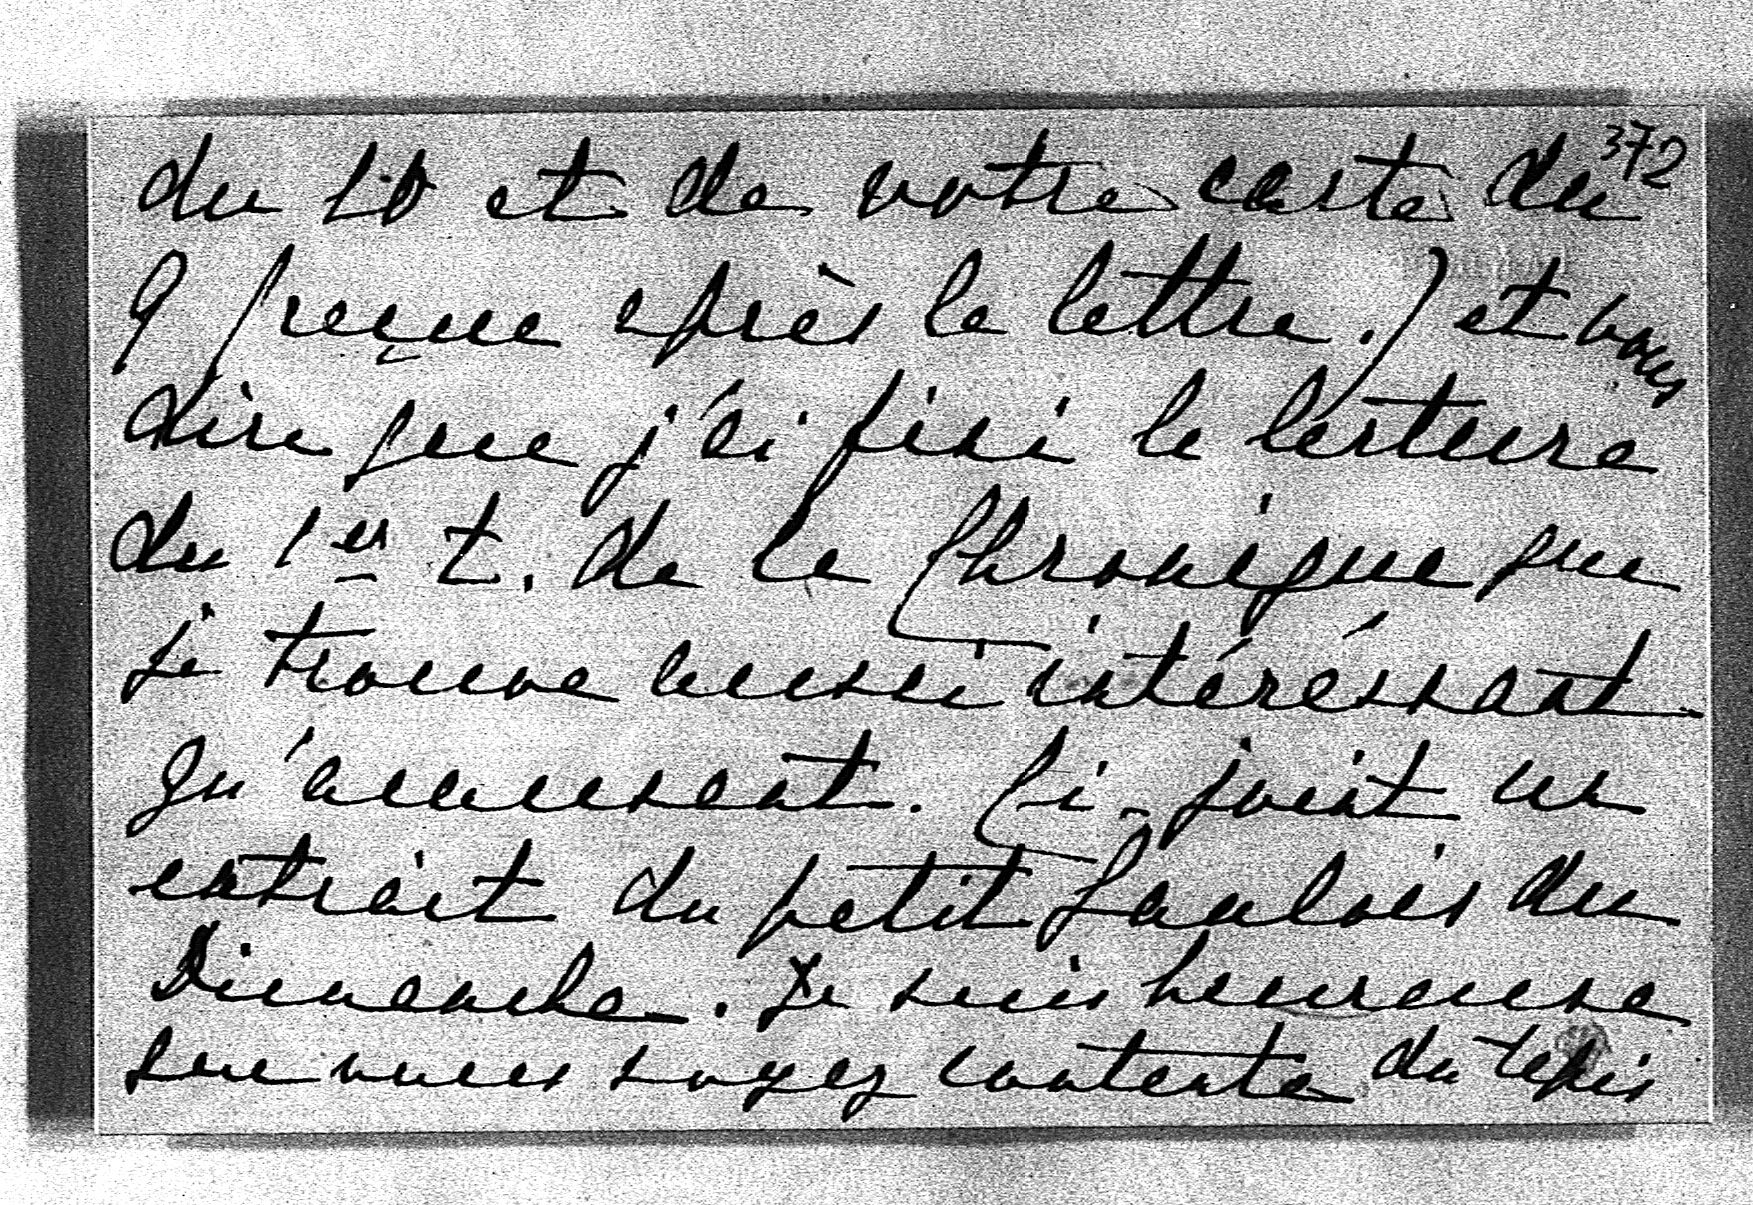 372
du 10 et de votre carte du
9 (reçue après la lettre.) et vous
dire que j'ai fini la lecture
du 1er t. de la Chronique que
je trouve aussi intéréssant
qu'amusant. Ci-joint un
extrait du petit Gaulois du
Dimanche. Je suis heureuse
que vous soyez contente du tapis